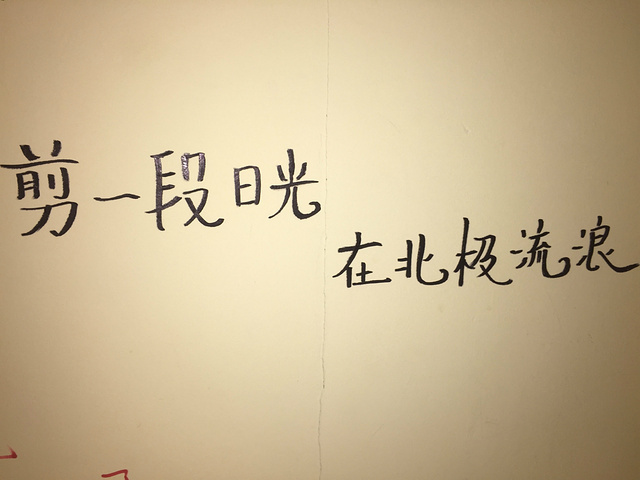 剪一段日光
在北极流浪